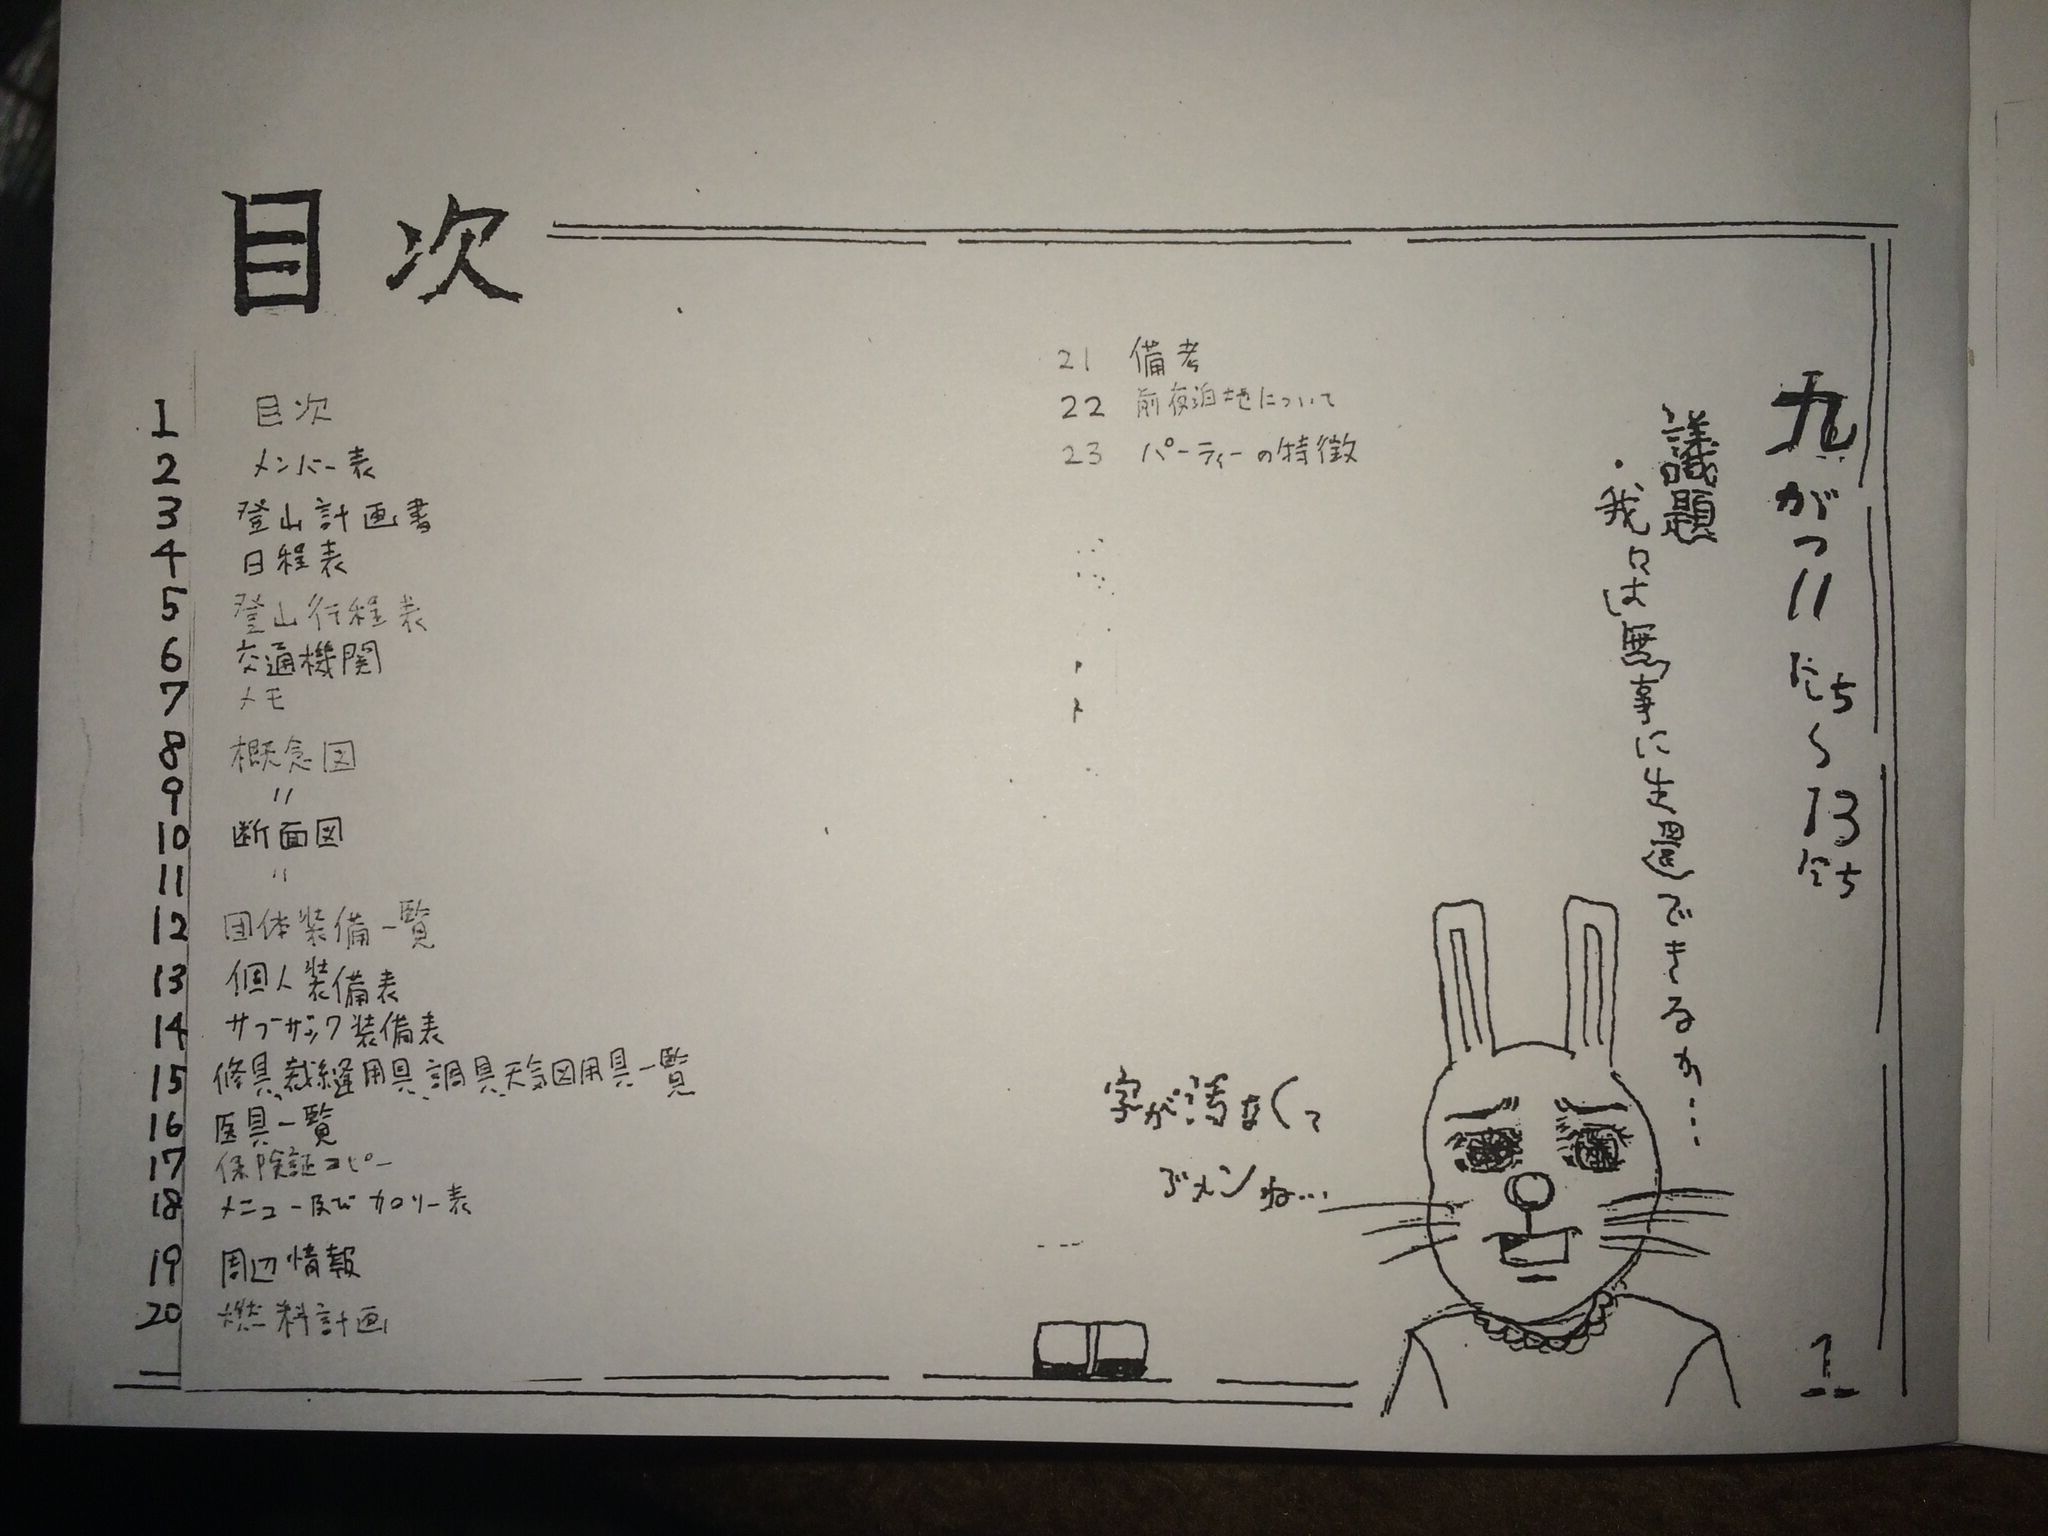 目次
1 目次
2 メンバー表
3 登山計画書
4 日程表
5 登山行程表
6 交通機関
7 メモ
8 概念図
9 〃
10 断面図
11 〃
12 団体装備一覧
13 個人装備表
14 サブザック装備表
15 修具、裁縫用具、調具、天気図用具一覧
16 医具一覧
17 保険証コピー
18 メニュー及びカロリー表
19 周辺情報
20 燃料計画
21 備考
22 前夜泊地について
23 パーティーの特徴
九がつ11にち〜13にち
議題
・我々は無事に生還できるか…
字が汚なくて
ゴメンね…
1